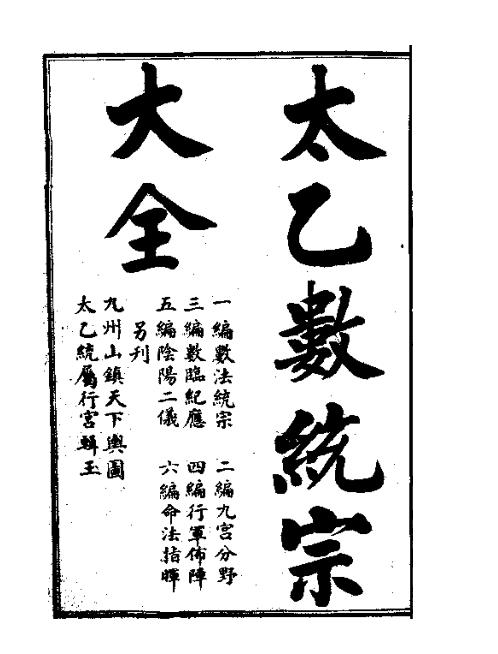 太乙數統宗
大全
一編數法統宗 二編九宮分野
三編數臨紀應 四編行軍佈陣
五編陰陽二儀 六編命法指暉
另刋
九州山鎮天下輿圖
太乙統屬行宮輯玉